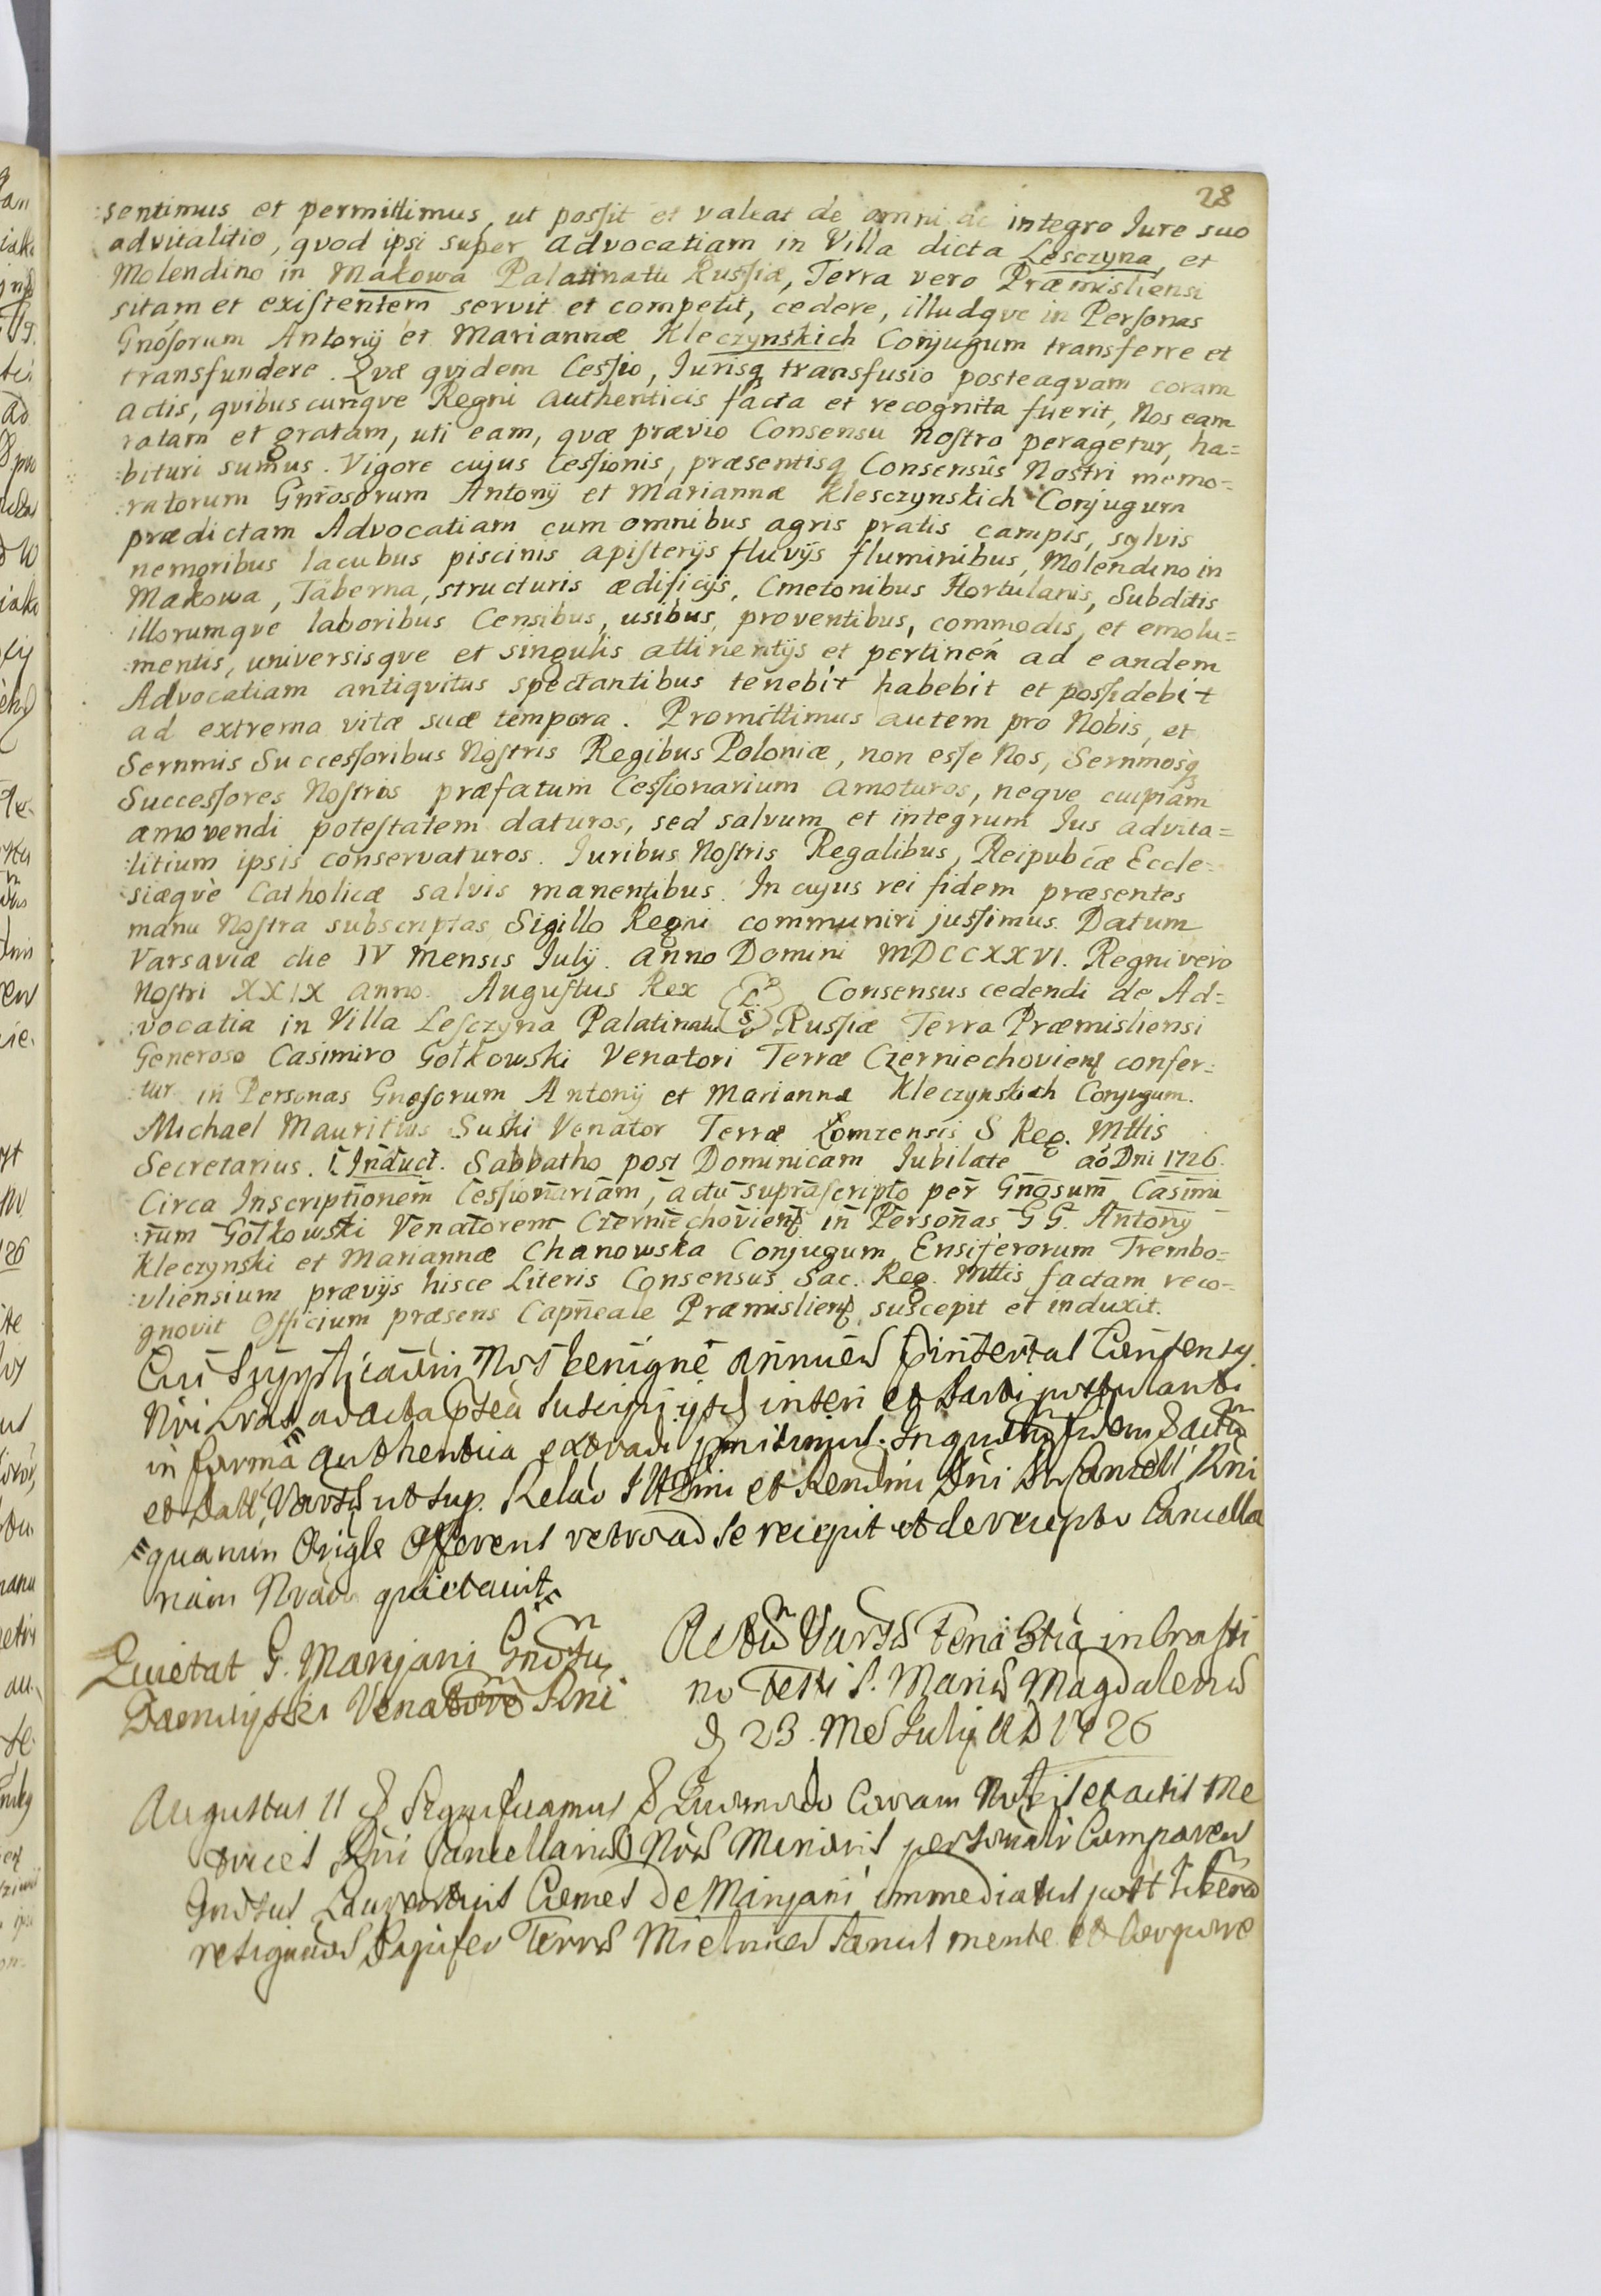 28
:sentimus et permittimus, ut possit et valeat de omni ac integro Iure suo
advitalitio, qvod ipsi super advocatiam in Villa dicta Lesczyna, et
Molendino in Makowa Palatinatu Russiæ, Terra vero Præmisliensi
sitam et existentem servit et competit, cedere, illudqve in Personas
Gnosorum Antonij et Mariannæ Kleczynskich Conjugum transferre et
transfundere. Qvæ qvidem Cessio, Jurisq transfusio posteaqvam coram
actis, qvibuscunqve Regni authenticis facta et recognita fuerit, Nos eam
ratam et gratam, uti eam, qvæ prævio Consensu nostro peragetur, ha=
:bituri sumus. Vigore cujus Cessionis, præsentisq Consensûs Nostri memo=
:ratorum Gnrosorum Antonij et Mariannæ Klesczynskich Conjugum
prædictam Advocatiam cum omnibus agris pratis campis, sylvis
nemoribus lacubus piscinis apisterijs fluvijs fluminibus, Molendino in
Makowa, Taberna, structuris ædificijs, Cmetonibus Hortulanis, Subditis
illorumqve laboribus Censibus, usibus, proventibus, commodis, et emolu=
:mentis, universisqve et singulis attinentijs et pertineñ ad eandem
Advocatiam antiqvitus spectantibus tenebit habebit et possidebit
ad extrema vitæ suæ tempora. Promittimus autem pro Nobis, et
Sernmis Successoribus Nostris Regibus Poloniæ, non esse Nos, Sernmosq
Successores Nostros præfatum Cessionarium amoturos, neqve cuipiam
amovendi potestatem daturos, sed salvum et integrum Ius advita=
:litium ipsis conservaturos. Iuribus Nostris Regalibus, Reipubcæ Eccle=
:siæqve Catholicæ salvis manentibus. In cujus rei fidem præsentes
manu Nostra subscriptas Sigillo Regni communiri jussimus. Datum
Varsaviæ die IV Mensis Julij. anno Domini MDCCXXVI. Regni vero
Nostri XXIX anno. Augustus Rex L. S. Consensus cedendi de Ad=
:vocatia in Villa Lesczyna Palatinatu Russiæ Terra Præmisliensi
Generoso Casimiro Gołkowski Venatori Terræ Czerniechoviens confer=
:tur in Personas Gnosorum Antonij et Mariannæ Kleczynskich Conjugum.
Michael Mauritius Suski Venator Terræ Łomzensis S Reg. Mttis
Secretarius. Induct. Sabbatho post Dominicam Jubilate ao Dni 1726.
Circa Inscriptionem Cessionariam, actu suprascripto per Gnosum Casimi
:rum Gołkowski Venatorem Czerniechoviens in Personas GG. Antonij
Kleczynski et Mariannæ Chanowska Conjugum, Ensiferorum Trembo=
:vliensium prævijs hisce Literis Consensus Sac. Reg. Mttis factam reco=
gnovit Officium præsens Capneale Præmisliens suscepit et induxit.
Cui Supplicaoni Nos benigne annuen Consensus
Nri Lras ad acta suscipi ijsq inseri et Parti postulanti
in forma authentica extradi pmisimus. In quorum fidem
et Datt, Vars ut sup. Relao Illmi et Rendmi Dni Cancell Rni
quarum Origle Offerens retro ad se recepit et de recepto Cancella
riam Nram quietavit
Quietat G. Marijani Gnoso
Venatore Rni
Actum Varsæ Feria 3tia in Crasti
no Festi S. Mariæ Magdalenæ
d 23. Mes Julij AD 1726
Augustus II Significamus Quomodo Coram Nobis et actis Me
trices Rni Cancellariæ Nræ Minoris personalr Comparen
Gnosus Comes De Marijani immediatus post
resignaon Dapifer Terræ Mielnicen Sanus mente et Corpore